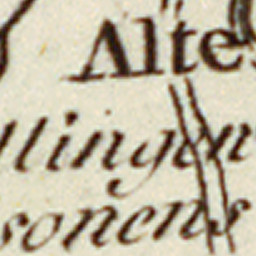 Alte
llingen
sonens